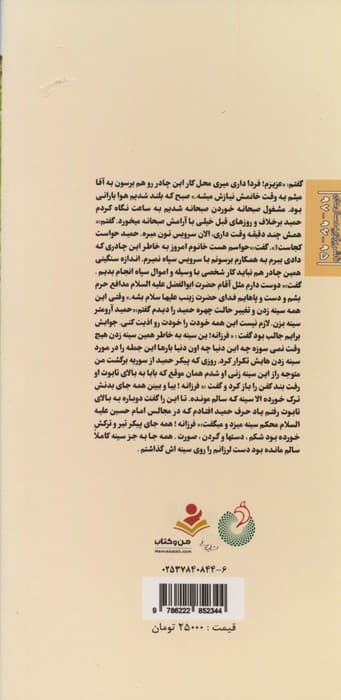 گفتم: «عزیزم! فردا داری میری محل کار این چادر رو هم برسون به آقا
میثم یه وقت خانمش نیازش میشه.» صبح که بلند شدیم هوا بارانی
بود. مشغول صبحانه خوردن صبحانه شدیم به ساعت نگاه کردم
حمید برخلاف و روزهای قبل خیلی با آرامش صبحانه میخورد. گفتم:«
همش چند دقیقه وقت داری، الان سرویس تون میره. حمید حواست
کجاست؟!». گفت:«حواسم هست خانوم امروز به خاطر این چادری که
دادی ببرم به همکارم برسونم با سرویس سپاه نمیرم. اندازه سنگینی
همین چادر هم نباید کار شخصی با وسیله و اموال سپاه انجام بدیم .
گفت:« دوست دارم مثل آقام حضرت ابوالفضل علیه السلام مدافع حرم
بشم و دست و پاهایم فدای حضرت زینب علیها سلام بشه .» وقتی این
همه سینه زدن و تغییر حالت چهره حمید را دیدم گفتم:«حمید آرومتر
سینه بزن. لازم نیست این همه خودت را اذیت کنی. جوابش
برایم جالب بود گفت : « فرزانه! این سینه به خاطر همین سینه زدن هیچ
وقت نمی سوزه چه این دنیا چه اون دنیا بارها این جمله را در مورد
سینه زدن هایش تکرار کرد. روزی که پیکر حمید از سوریه برگشت من
متوجه راز این سینه زنی او شدم همان موقع که بابا به بالای تابوت او
رفت بند کفن را باز کرد و گفت :«ر فرزانه ! بیا و ببین همه جای بدنش
ترک خورده الا سینه که سالم مونده. تا این را گفت دوباره به بالای
تابوت رفتم یاد حرف حمید افتادم که در مجالس امام حسین علیه
السلام محکم سینه میزد و میگفت:« فرزانه ! همه جای پیکر تیر و ترکش
خورده بود شکم ، دستها و گردن ، صورت . همه جا به جز سینه کاملاً
سالم مانده بود دست لرزانم را روی سینه اش گذاشتم .
من و کتاب
Manvaketab.com
۰۲۵۳۷۸۴۰۸۴۴-۶
9 786222 852344
قیمت : ۲۵۰۰۰ تومان